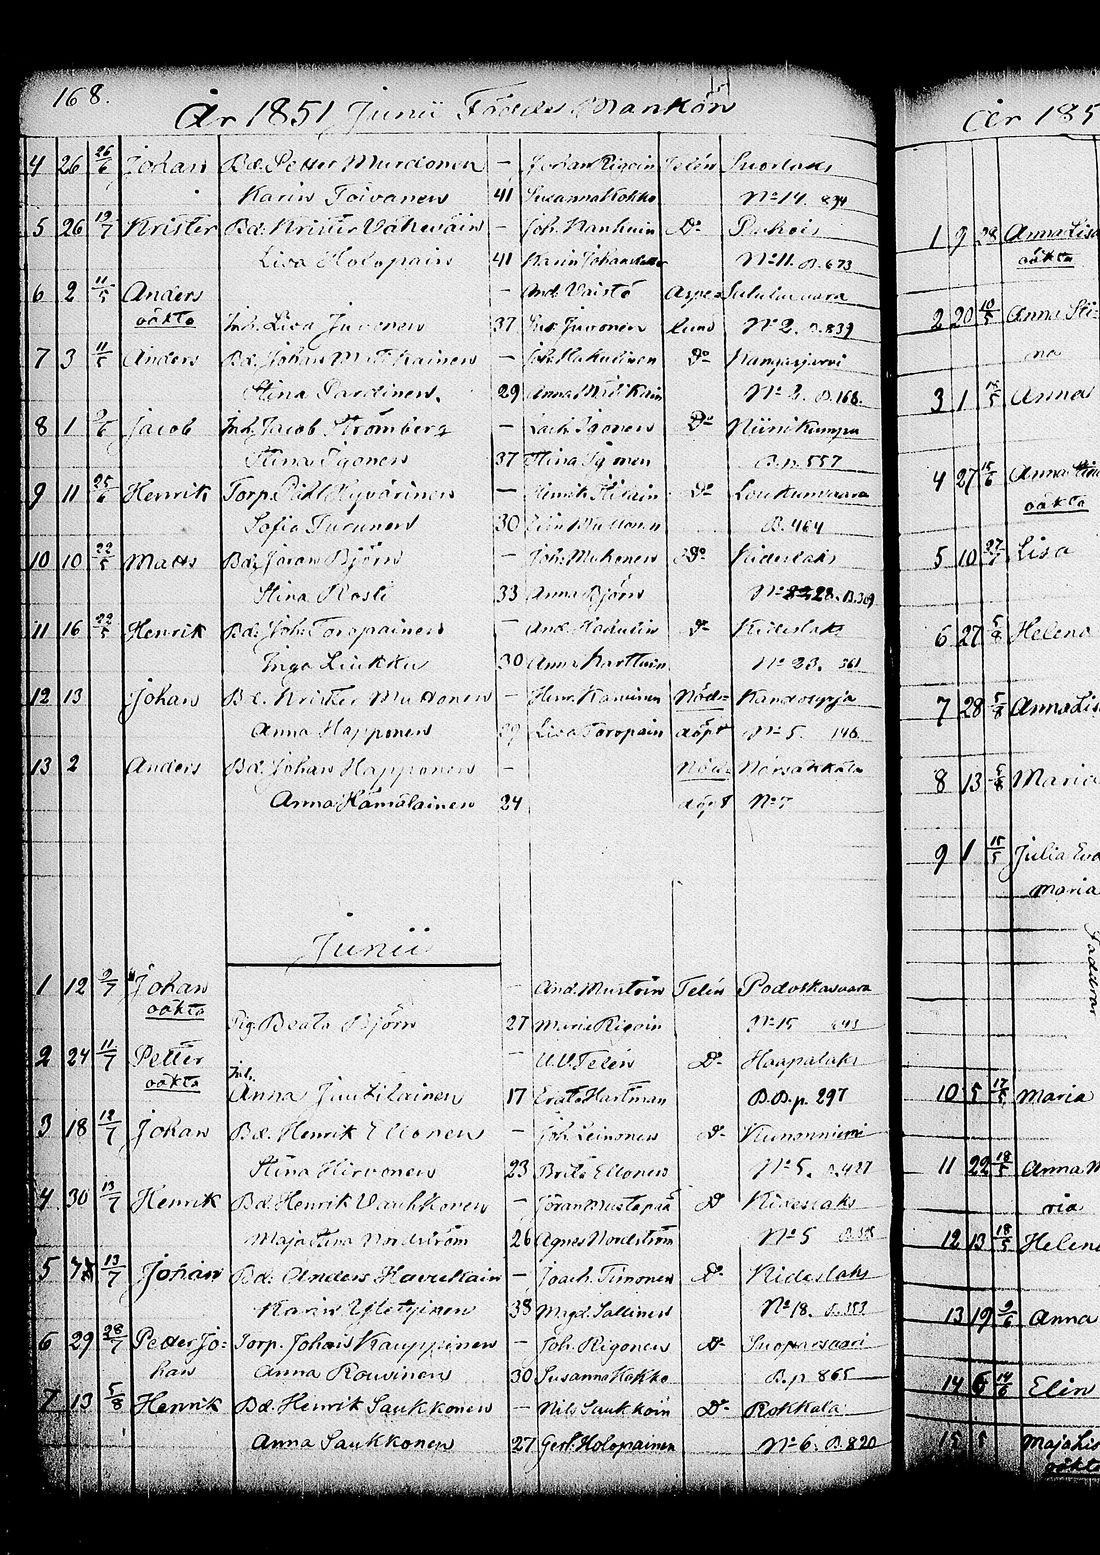 168.
År 1851 Junii Föddes Mankön
4 26 26/6 Johan Bd. Petter Muroonen — Johan Rigoin Telén Suorlaks
Karin Toivanen 41 Susanna Kokko No 14. 834
5 26 12/7 Krister Bd. Krister Väkeväin — Joh. Nanhuin Do Puhois
Lisa Holopain 41 Karin No 11. B.673
6 2 11/5 Anders — And. Vaistö Aspe-
oäkta Inh. Lisa Juvonen 37 Sus. Juvonen lund No 2. B.839
7 3 11/5 Anders Bd. Johan Matikainen — Joh. Hakulinen Do Kangasjärvi
Stina Pardinen. 29 Anna Matikain No 2. B.168.
8 1 /6 Jacob Inh. Jacob Strömberg — Zach. Igonen Do Niinikumpu
Stina Igonen 37 Stina Igonen B.p. 557
9 11 25/6 Henrik Torp. Hyvärinen — Henrik Do Loukunvaara
Sofia Turunen 30 Elin Muttonen B.464
10 10 22/5 Matts Bd. Jöran Björn — Joh. Muhonen Do Kideslaks
Stina Kosti 33 Anna Björn No 28. B.309
11 16 22/5 Henrik Bd. Joh. Toropainen — And. Hakulin Do Kideslaks
Inga Liukku 30 Anna Karttuin No 23. 361
12 13 Johan Bd. Krister Muttonen — Henr. Kaminen Nöd- Kandosyrja
Anna Happonen 29 Lisa Toropain döpt No 5. 146
13 2 Anders Bd. Johan Happonen — Nöd- Närsäkkälä
Anna Hämäläinen 24 döpt No 7
Junii
1 12 9/7 Johan — And. Mustoin Telén Podoskavaara
oäkta Pig. Beata Björn 27 Maria Rigoin No 15 643
2 24 11/7 Petter — Ull. Telén Do Haapalaks
oäkta Inh. Anna Juutilainen 17 Erato Hartman B.B.p. 297
3 18 12/7 Johan Bd. Henrik Ellonen — Joh. Leinonen Do Kunonniemi
Stina Hirvonen 23 Brita Ellonen No 5. B.427
4 30 13/7 Henrik Bd. Henrik Vauhkonen — Jöran Mustapää Do Kideslaks
Maja Stina Nordström 26 Agnes Nordström No 5
5 7 13/7 Johan Bd. Anders Havukain — Joach. Timonen Do Kideslaks
Karin Yletyinen 38 Magd. Sallinen No 18. B.353
6 29 28/7 Petter Jo- Torp. Johan Kauppinen — Joh. Rigonen Do Suoparsaari
han Anna Rouvinen 30 Susanna Kokko B.p. 865
7 13 5/8 Henrik Bd. Henrik Saukkonen — Nils Saukkoin Do Rokkala
Anna Saukkonen 27 Gert. Holopainen No 6. B.820
År 185
1 9 28 Anna Lisa
oäkta
2 20 10/5 Anna Sti-
na
3 1 /5 Anna
4 27 15/6 Anna Stina
oäkta
5 10 27/7 Lisa
6 27 5/8 Helena
7 28 5/8 Anna Lis
8 13 5/8 Maria
9 1 15/5 Julia Eva
Maria
Faddrar
10 5 17/5 Maria
11 22 18/5 Anna M
ria
12 13 18/5 Helena
13 19 9/6 Anna
14 6 14/6 Elin
15 5 Maja Lis
oäkta